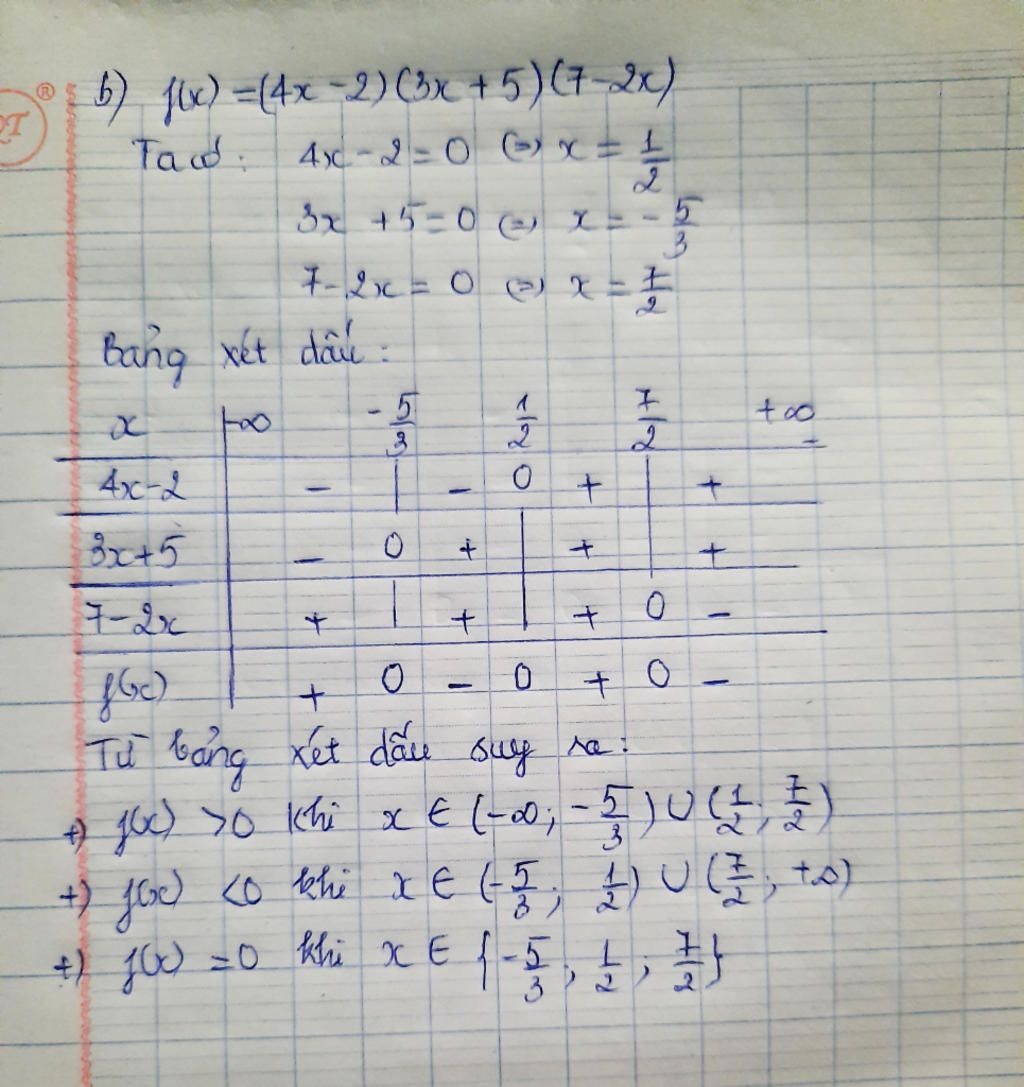 b) f(x) = (4x - 2)(3x + 5)(7 - 2x)
Ta có: 4x - 2 = 0 (=) x = 1/2
3x + 5 = 0 (=) x = - 5/3
7 - 2x = 0 (=) x = 7/2
Bảng xét dấu:
x | -∞ -5/3 1/2 7/2 +∞
4x-2 | - | - 0 + | +
3x+5 | - 0 + | + | +
7-2x | + | + | + 0 -
f(x) | + 0 - 0 + 0 -
Từ bảng xét dấu suy ra:
+) f(x) > 0 khi x ∈ (-∞; -5/3) ∪ (1/2; 7/2)
+) f(x) < 0 khi x ∈ (-5/3; 1/2) ∪ (7/2; +∞)
+) f(x) = 0 khi x ∈ {-5/3; 1/2; 7/2}